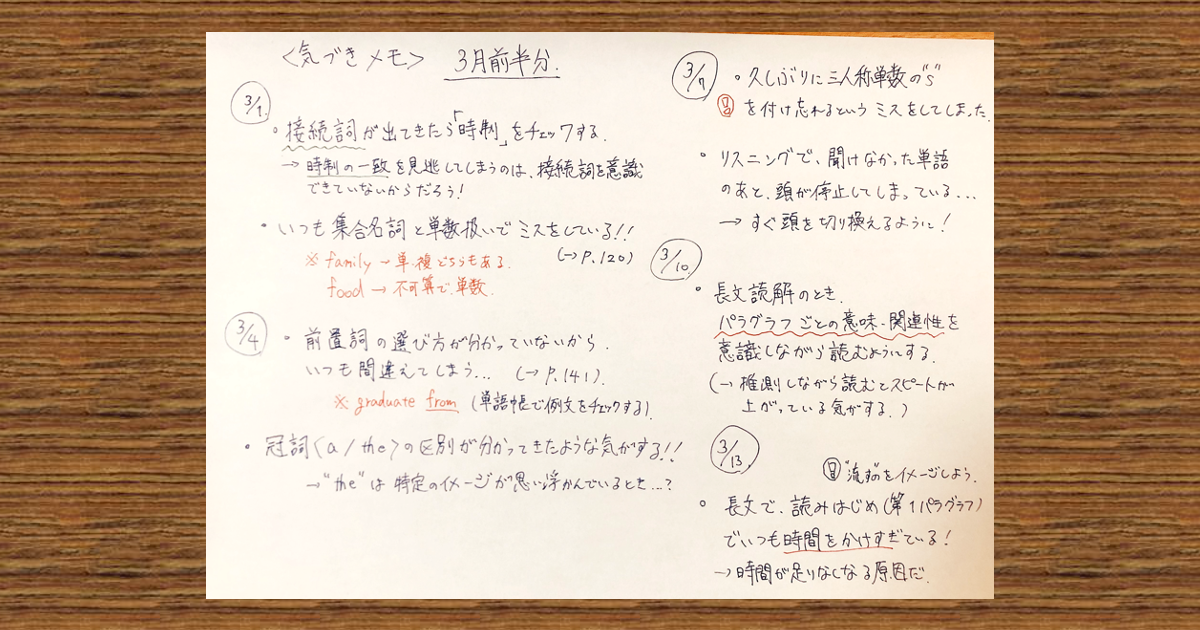 <気づきメモ> 3月前半分.
3/1
・接続詞が出てきたら「時制」をチェックする.
→ 時制の一致を見逃してしまうのは、接続詞を意識
できていないからだろう!
・いつも集合名詞と単数扱いでミスをしている!!
(→P.120)
※ family → 単・複どちらもある.
food → 不可算で、単数.
3/4
・前置詞の選び方が分かっていないから、
いつも間違えてしまう... (→P.141).
※ graduate from (単語帳で例文をチェックする).
・冠詞(a / the)の区別が分かってきたような気がする!!
→"the"は特定のイメージが思い浮かんでいるとき...?
3/7
・久しぶりに三人称単数の"s"
を付け忘れるというミスをしてしまった.
・リスニングで、聞けなかった単語
のあと、頭が停止してしまっている...
→ すぐ頭を切り換えるように!
3/10
・長文読解のとき、
パラグラフごとの意味・関連性を
意識しながら読むようにする.
(→ 推測しながら読むとスピートが
上がっている気がする.)
3/13
"流す"をイメージしよう.
・長文で、読みはじめ(第1パラグラフ)
でいつも時間をかけすぎている!
→時間が足りなくなる原因だ.